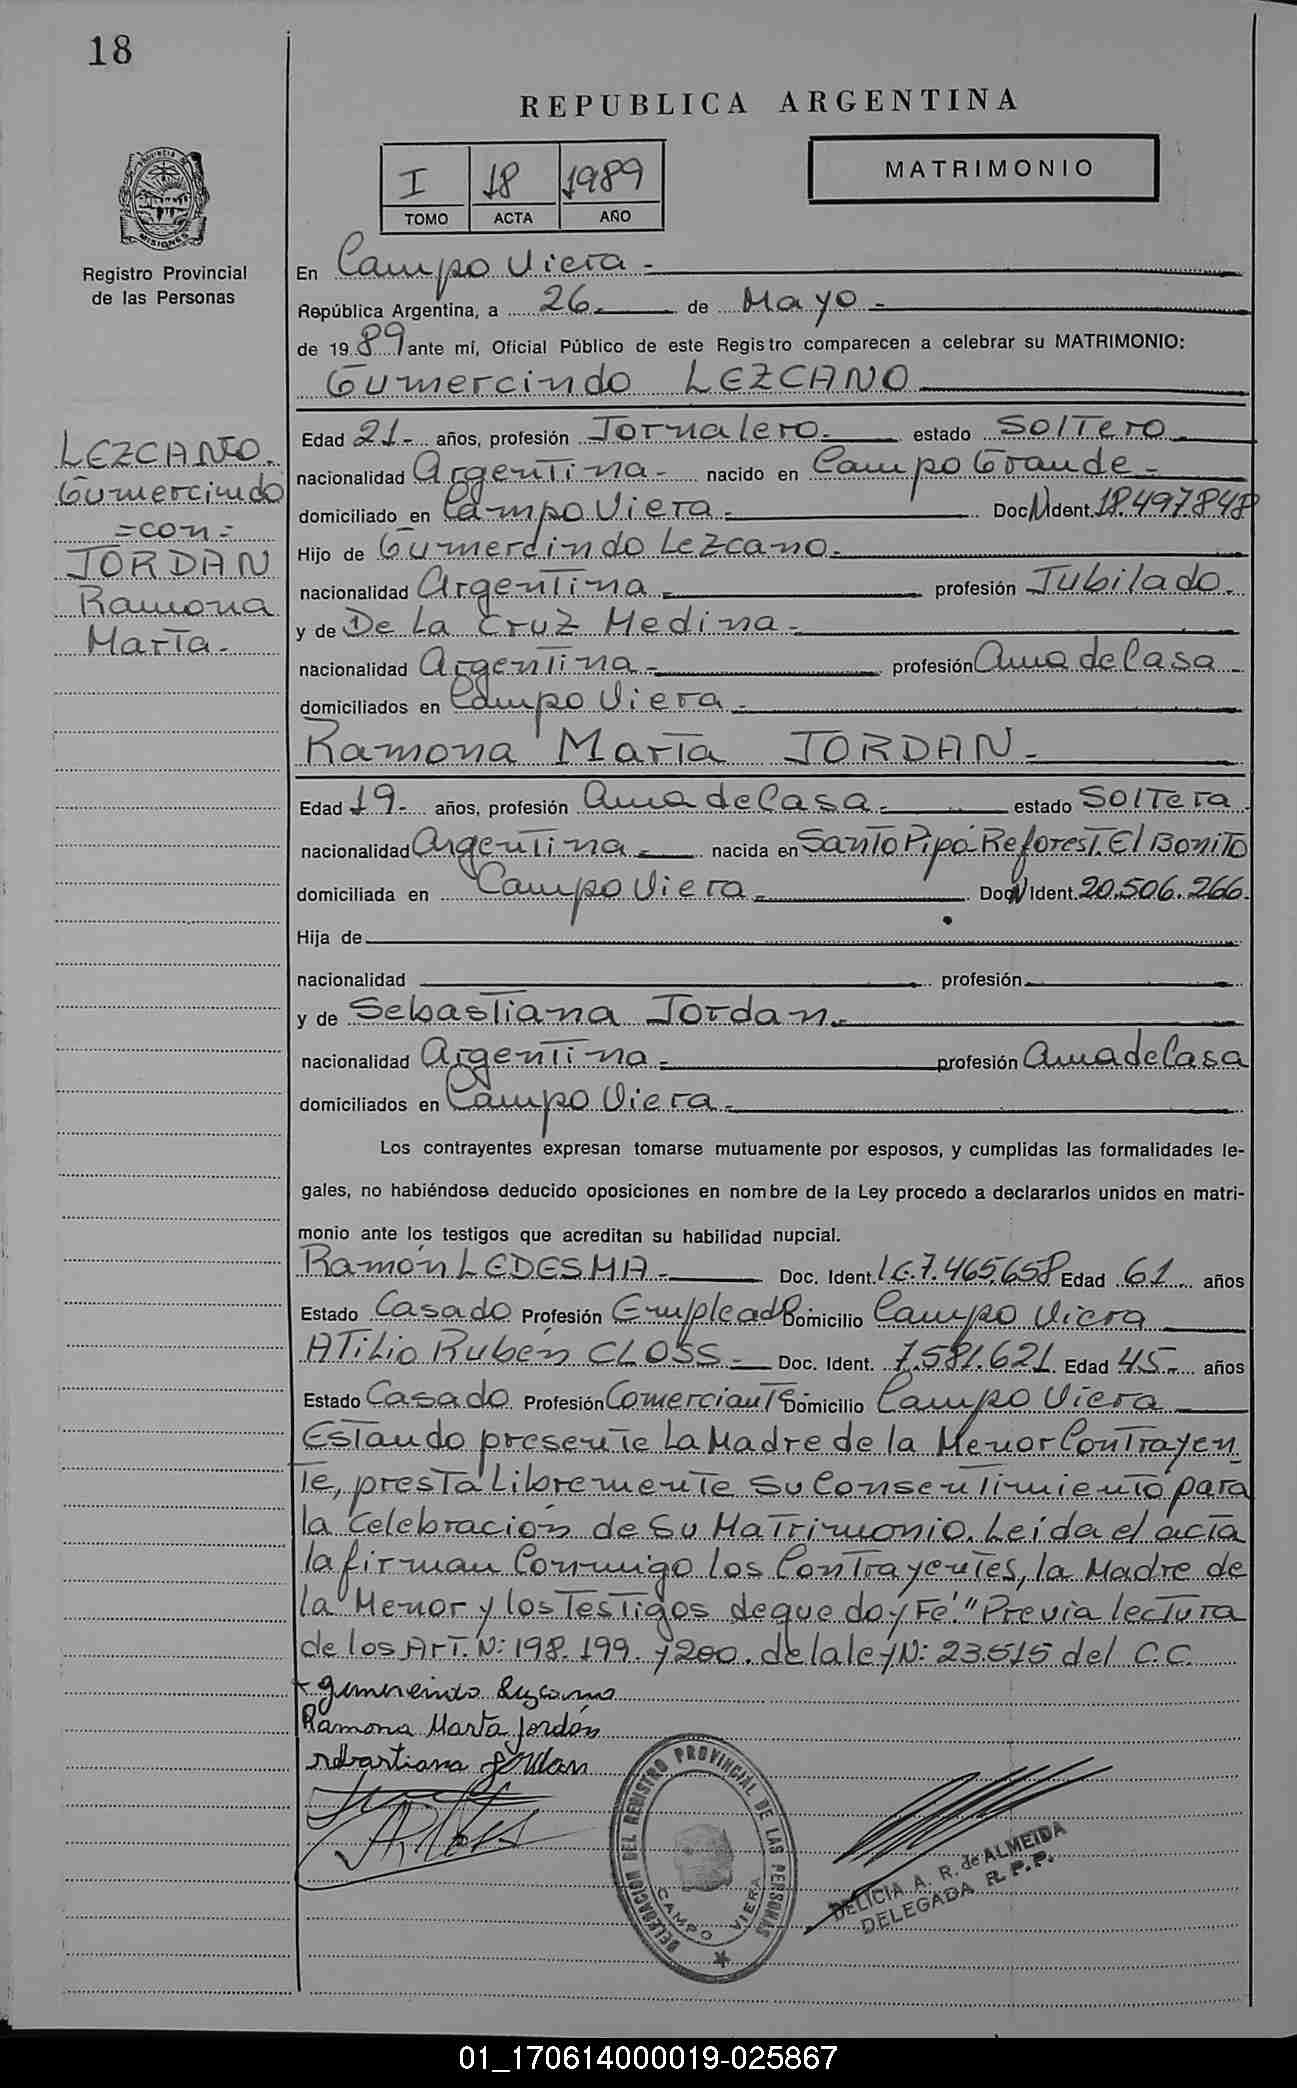 18
REPUBLICA ARGENTINA
I 18 1989
TOMO ACTA AÑO
MATRIMONIO
PROVINCIA DE MISIONES
Registro Provincial
de las Personas
En Campo Viera -
República Argentina, a 26 de Mayo -
de 1989 ante mí, Oficial Público de este Registro comparecen a celebrar su MATRIMONIO:
Gumercindo LEZCANO
LEZCANO.
Gumercindo
=con=
JORDAN
Ramona
Marta.-
Edad 21- años, profesión Jornalero.- estado Soltero
nacionalidad Argentina.- nacido en Campo Grande-
domiciliado en Campo Viera- Doc N Ident. 18.497.848
Hijo de Gumercindo Lezcano.
nacionalidad Argentina.- profesión Jubilado.
y de De La Cruz Medina-
nacionalidad Argentina.- profesión Ama de Casa
domiciliados en Campo Viera -
Ramona Marta JORDAN-
Edad 19- años, profesión Ama de Casa.- estado Soltera
nacionalidad Argentina.- nacida en Santo Pipó-Reforest. El Bonito
domiciliada en Campo Viera- Doc N Ident. 20.506.266.
Hija de
nacionalidad profesión
y de Sebastiana Jordan.-
nacionalidad Argentina.- profesión Ama de Casa
domiciliados en Campo Viera.-
Los contrayentes expresan tomarse mutuamente por esposos, y cumplidas las formalidades le-
gales, no habiéndose deducido oposiciones en nombre de la Ley procedo a declararlos unidos en matri-
monio ante los testigos que acreditan su habilidad nupcial.
Ramón LEDESMA.- Doc. Ident. L.E. 7.465.658 Edad 61 años
Estado Casado Profesión Empleado Domicilio Campo Viera
Atilio Rubén CLOSS.- Doc. Ident. 7.581.621 Edad 45- años
Estado Casado Profesión Comerciante Domicilio Campo Viera
Estando presente La Madre de la Menor Contrayen
te, presta Libremente Su Consentimiento para
la Celebración de Su Matrimonio. Leida el acta
la firman Conmigo los Contrayentes, la Madre de
la Menor y los Testigos de que doy Fé." Previa lectura
de los Art. N: 198. 199. y 200. de la ley N: 23.515 del C.C.
gumercindo Lezcano
Ramona Marta Jordán
sebastiana Jordan
DELEGACION DEL REGISTRO PROVINCIAL DE LAS PERSONAS
CAMPO VIERA
DELICIA A. R. de ALMEIDA
DELEGADA R. P. P.
01_170614000019-025867